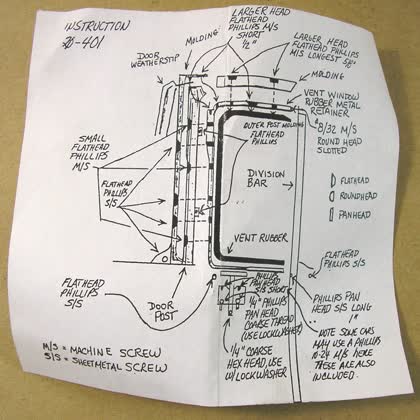 INSTRUCTION
-401
LARGER HEAD
FLATHEAD
PHILLIPS M/S
SHORT
1/2"
MOLDING
DOOR
WEATHERSTIP
LARGER HEAD
FLATHEAD PHILLIPS
M/S LONGEST 5/8"
MOLDING
VENT WINDOW
RUBBER METAL
RETAINER
8/32 M/S
ROUND HEAD
SLOTTED
OUTER POST MOLDING
FLATHEAD
PHILLIPS
SMALL
FLATHEAD
PHILLIPS
M/S
FLATHEAD
PHILLIPS
S/S
DIVISION
BAR
FLATHEAD
ROUNDHEAD
PANHEAD
VENT RUBBER
FLATHEAD
PHILLIPS
S/S
FLATHEAD
PHILLIPS S/S
DOOR
POST
PHILLIPS
PAN HEAD
S/S SHORT
1/4" PHILLIPS
PAN HEAD
COARSE THREAD
(USE LOCKWASHER)
1/4" COARSE
HEX HEAD, USE
W/LOCKWASHER
PHILLIPS PAN
HEAD S/S LONG
1"
NOTE SOME CARS
MAY USE A PHILLIPS
10-24 M/S HERE
THESE ARE ALSO
INCLUDED.
M/S = MACHINE SCREW
S/S = SHEETMETAL SCREW